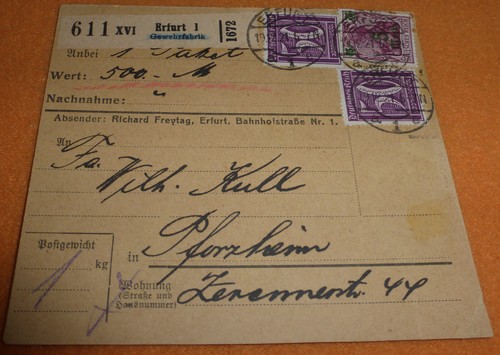 611 XVI Erfurt 1 Gewehrfabrik 1672
ERFURT
1
Anbei 1 Paket
Wert: 500.- M
Nachnahme: "
Absender: Richard Freytag, Erfurt, Bahnhofstraße Nr. 1.
An
Fa.
Wilh. Kull
in Pforzheim
Postgewicht
1 kg
Wohnung
(Straße und
Hausnummer)
Zerennerstr. 44
Deutsches Reich